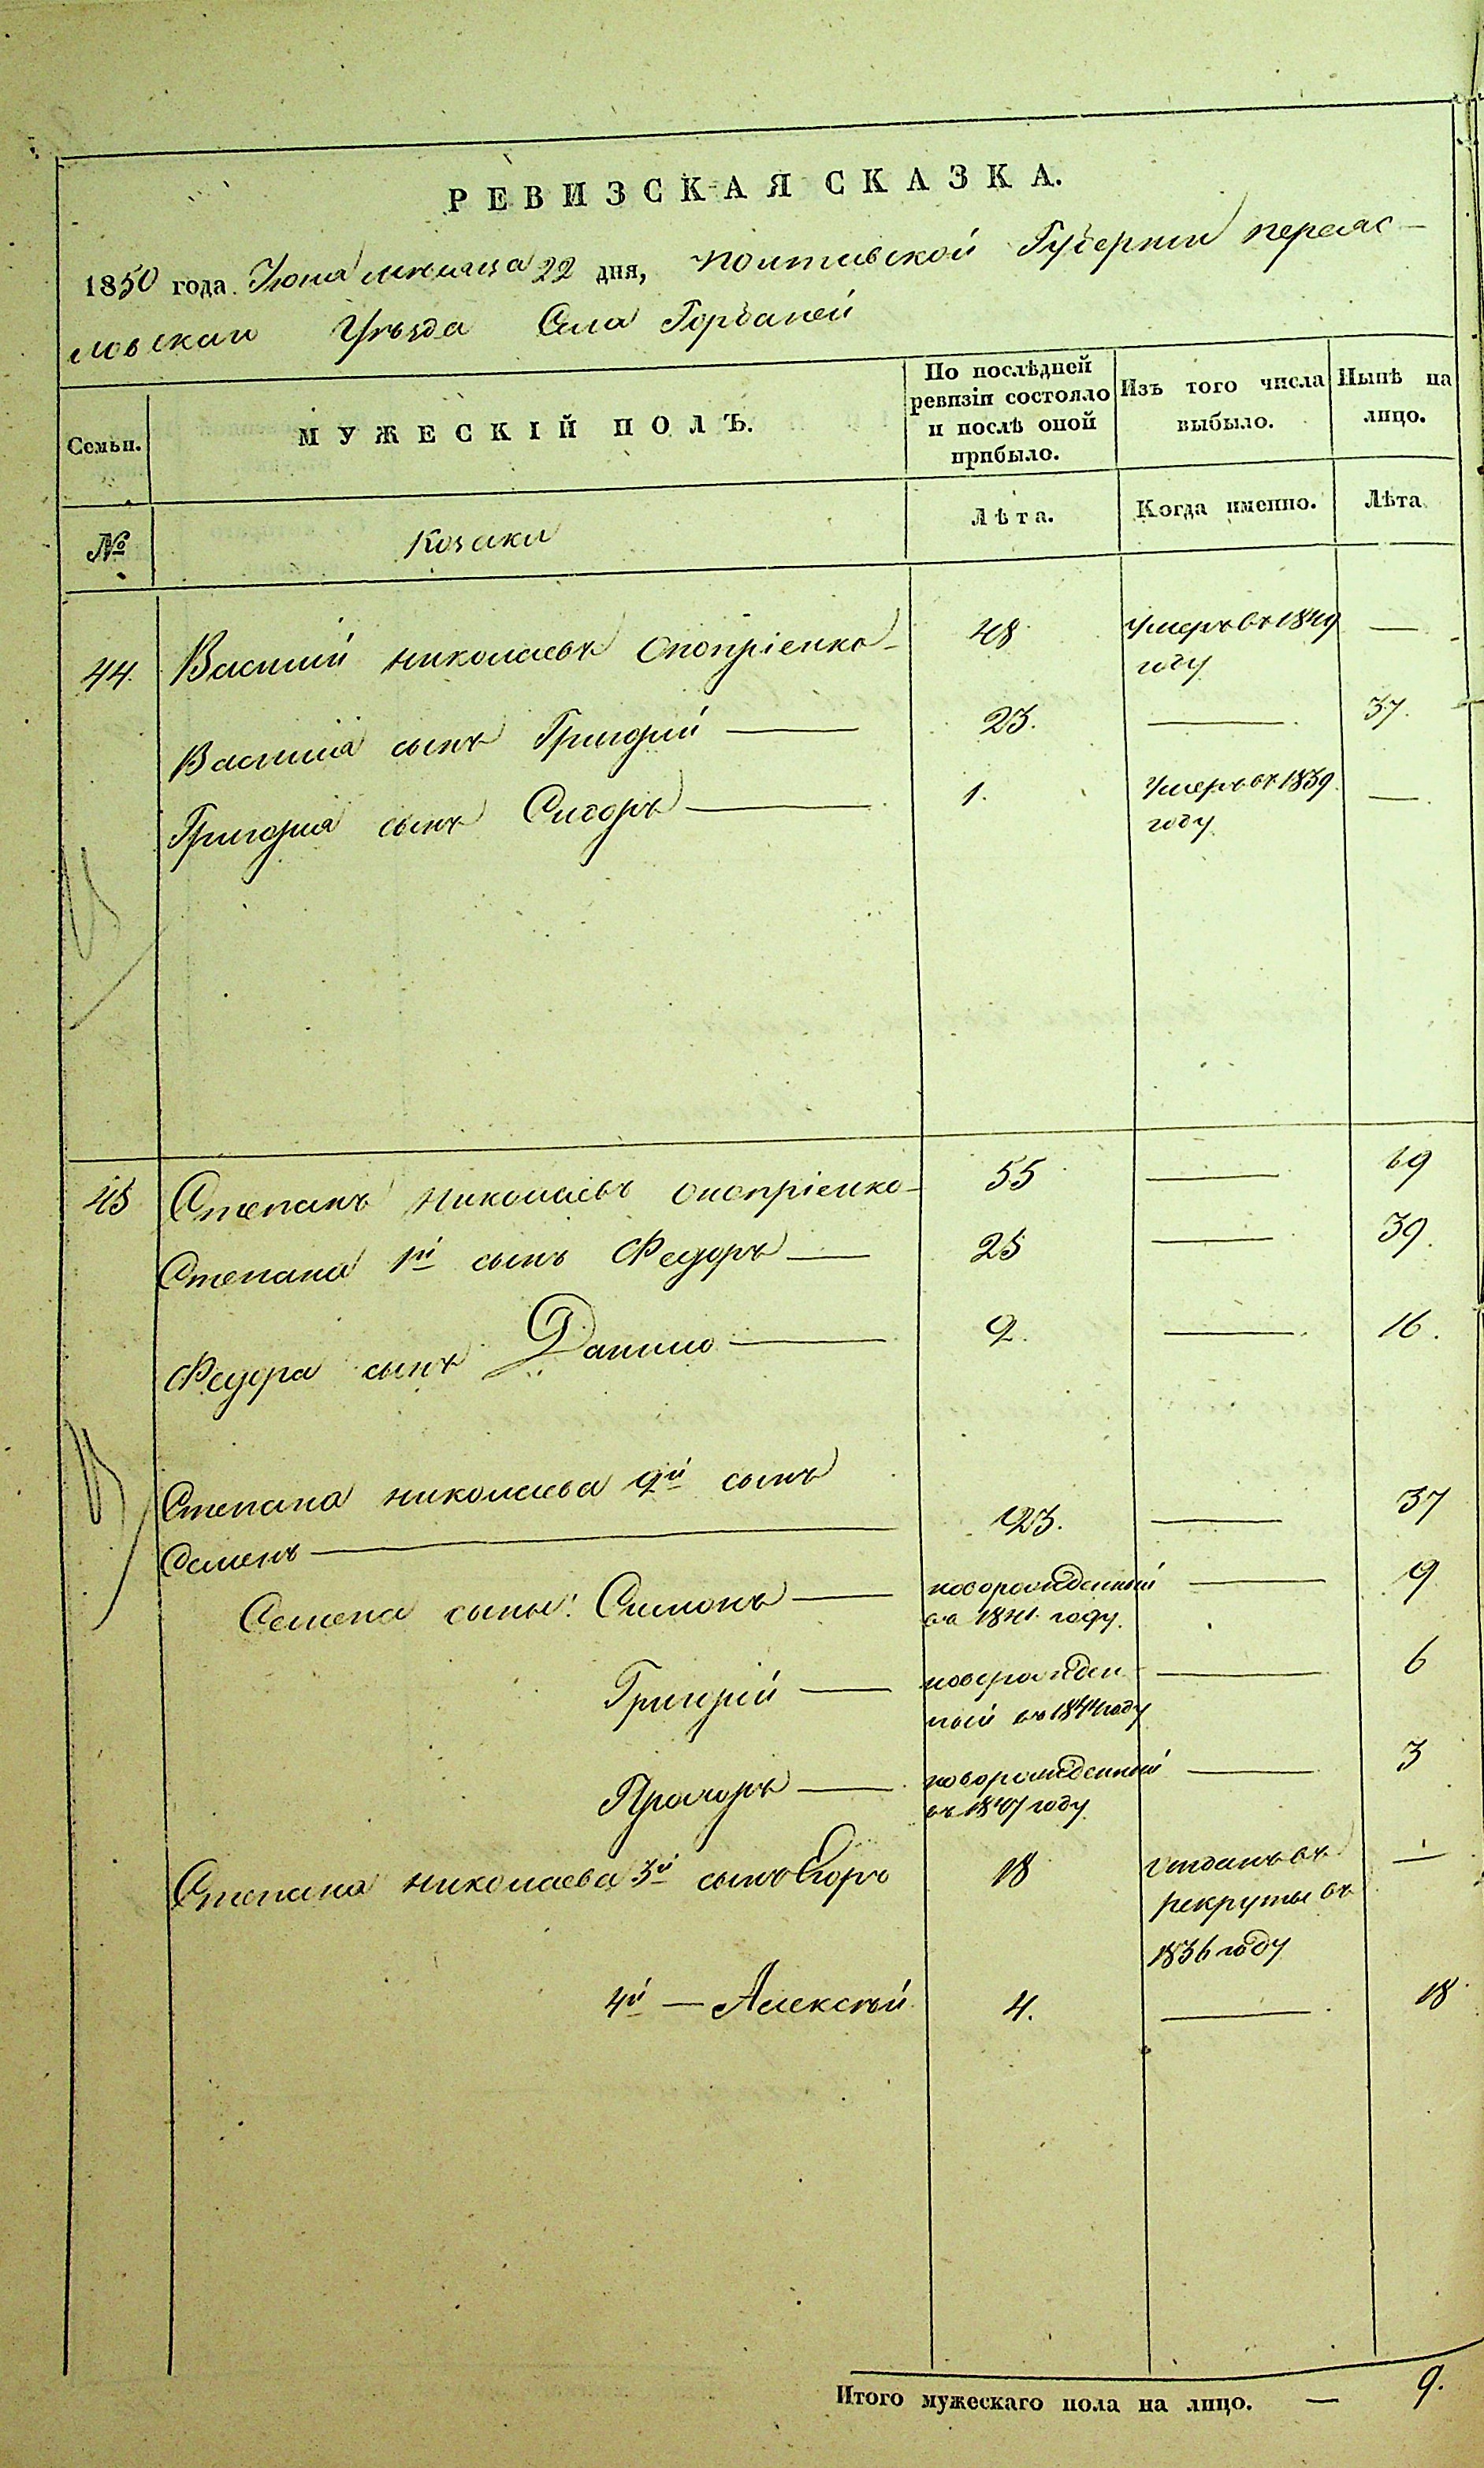 РЕВИЗСКАЯ СКАЗКА.
1850 года Июня месяца 22 дня, Полтавской Губернии переяс-
ловскаго Уѣзда Села Горбаней
Семьи.
МУЖЕСКІЙ ПОЛЪ.
По послѣдней ревизіи состояло и послѣ оной прибыло.
Изъ того числа выбыло.
Нынѣ на лицо.
№
Козаки
Лѣта.
Когда именно.
Лѣта
44. Василий Николаевъ Оноприенко 48 Умеръ въ 1849 году —
Василия сынъ Григорий — 23. — 37.
Григория сынъ Сидоръ — 1. Умеръ въ 1839 году —
45 Степанъ Николаевъ Оноприенко 55 — 69
Степана 1й сынъ Федоръ — 25 — 39.
Федора сынъ Данило — 2. — 16.
Степана Николаева 2й сынъ
Семенъ — 23. — 37
Семена сыны: Симонъ — новорожденный въ 1841 году. — 9
Григорій — новорожден-ный въ 1844 году — 6
Прохоръ — новорожденный въ 1847 году — 3
Степана Николаева 3й сынъ Егоръ 18 отданъ въ рекруты въ 1836 году —
4й — Алексѣй 4. — 18
Итого мужескаго пола на лицо. — 9.